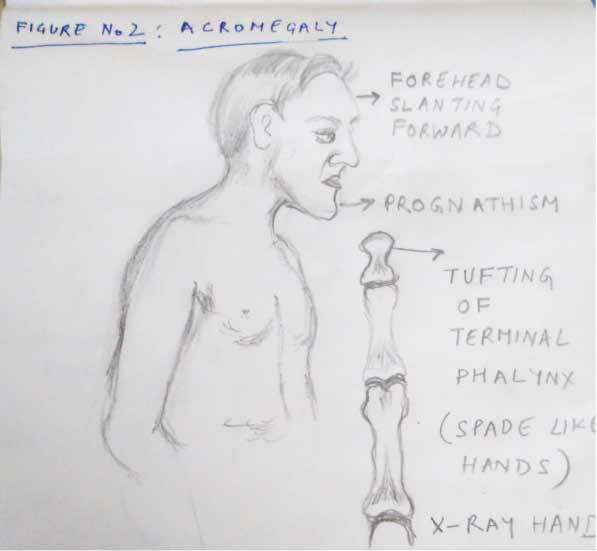 FIGURE No 2 : ACROMEGALY
FOREHEAD
SLANTING
FORWARD
PROGNATHISM
TUFTING
OF
TERMINAL
PHALYNX
(SPADE LIKE
HANDS)
X-RAY HAND